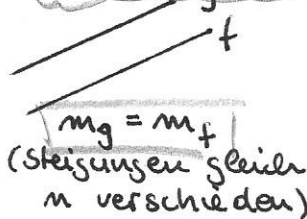 f
m_g = m_f
(Steigungen gleich
n verschieden)